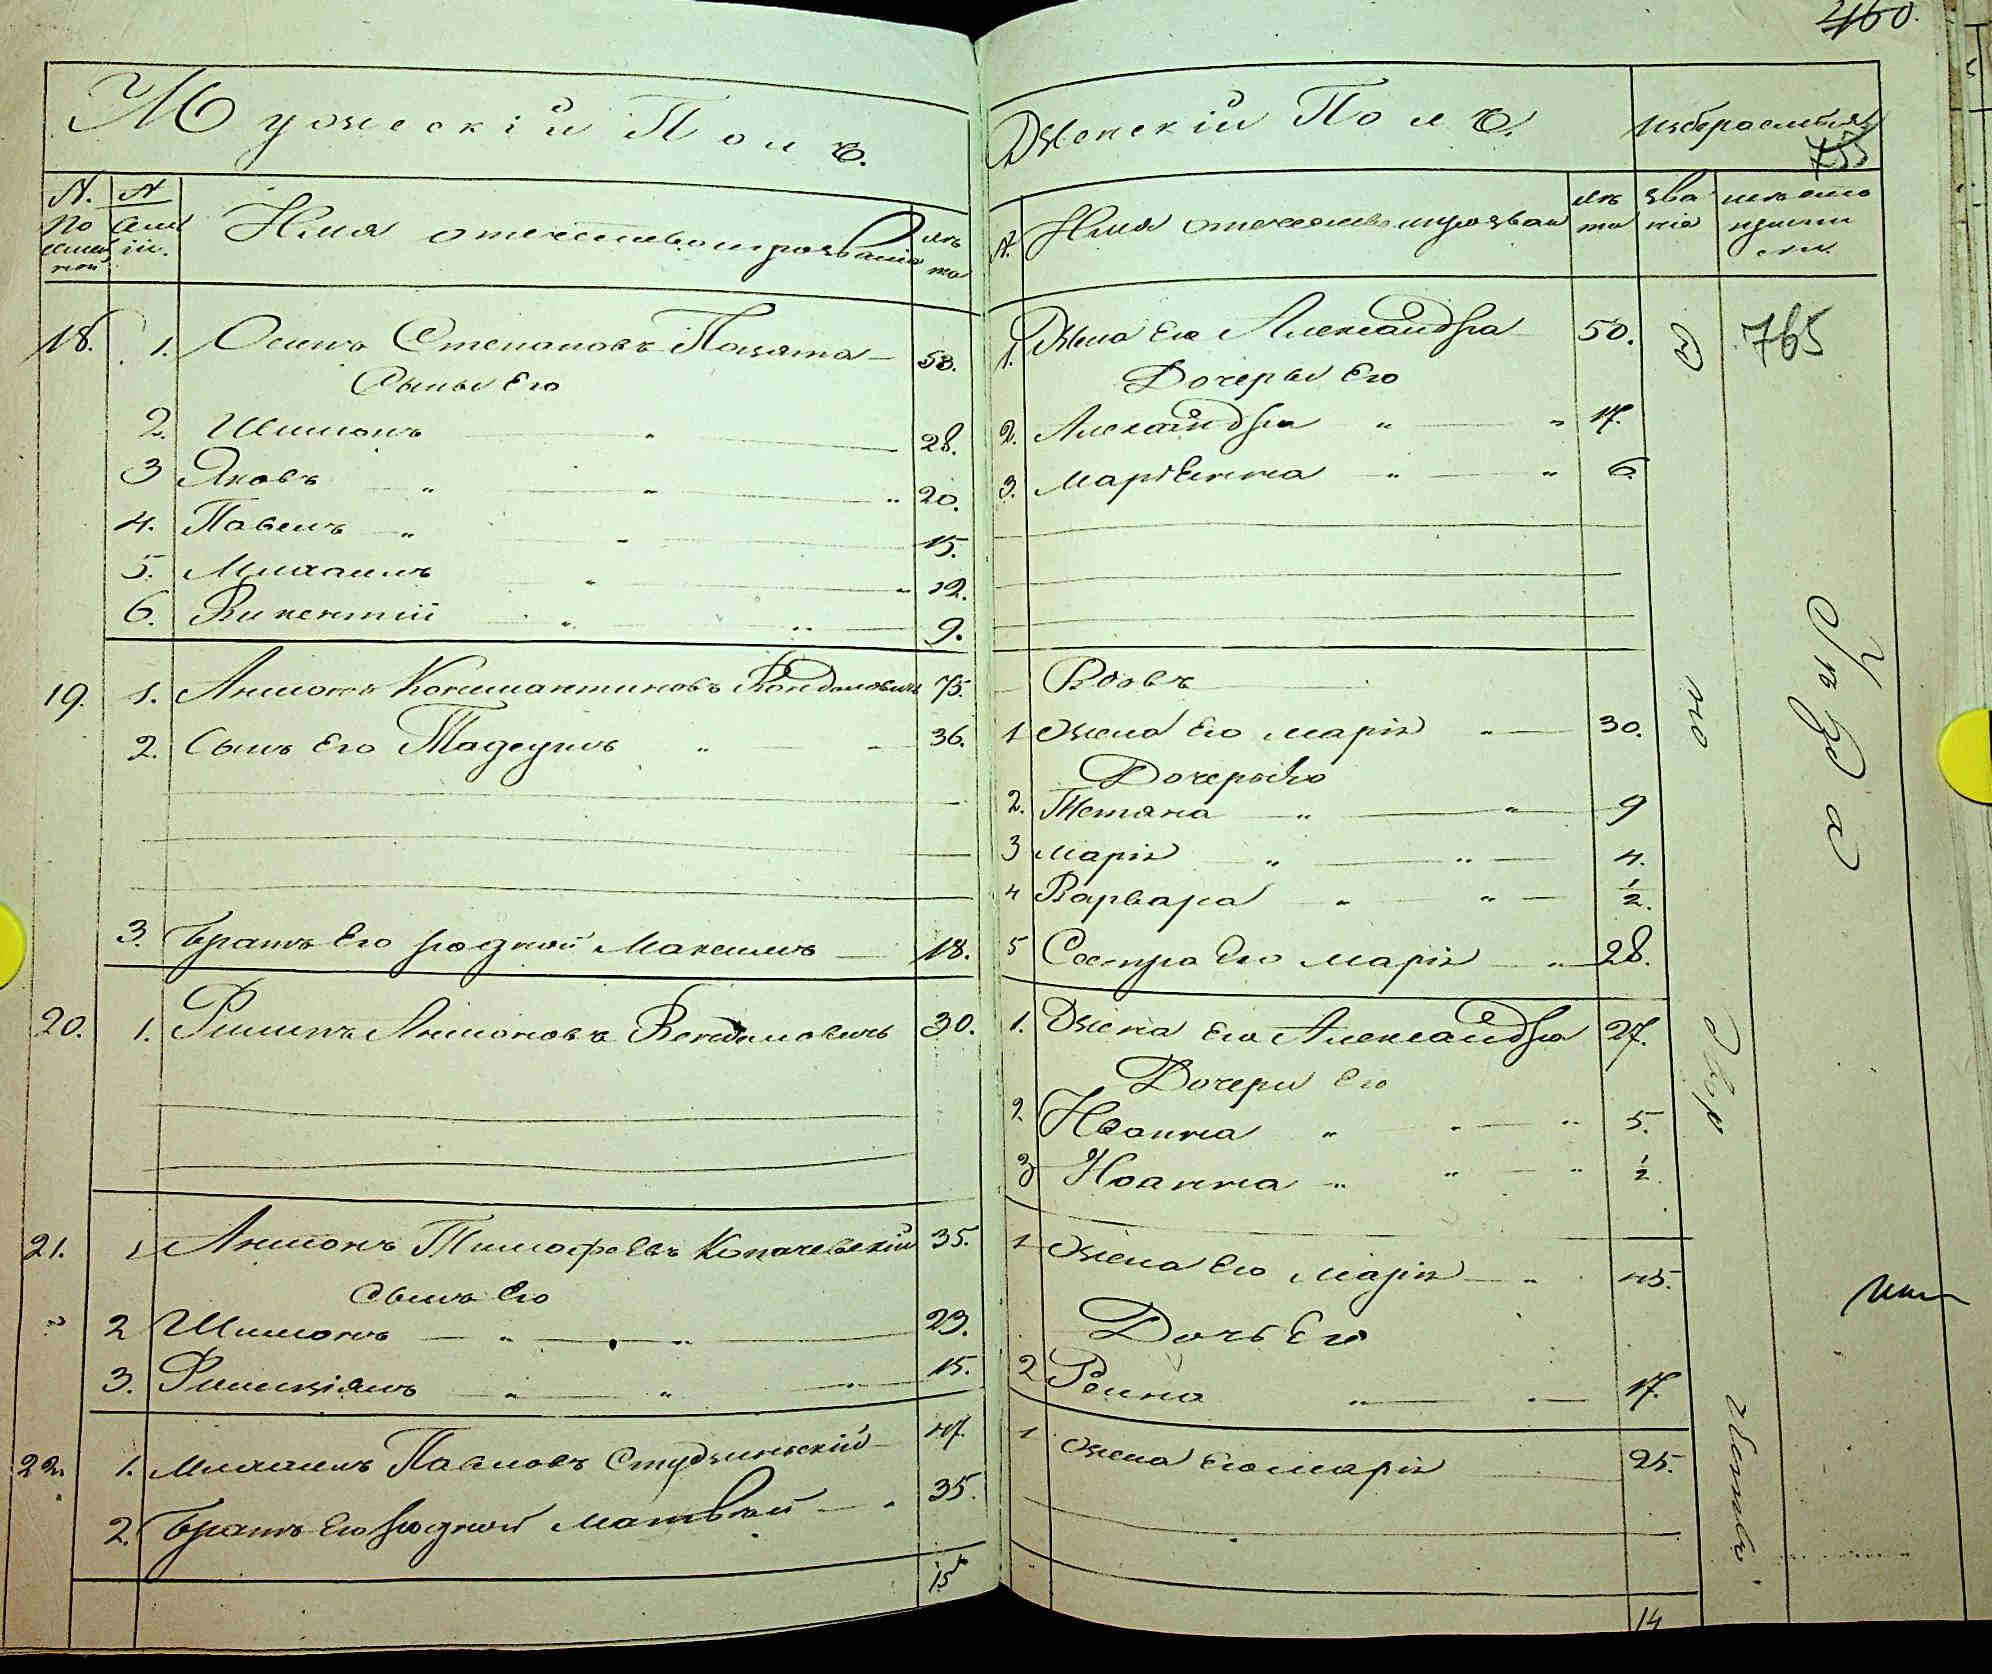 460.
Мужескій Полъ.
№. по семей ной
№ Семи ій.
Имя отечество и прозваніе
лѣ та
18. 1. Осипъ Степановъ — 58.
Сыны Его
2. Шимонъ " 28.
3 Яковъ " " " 20.
4. Павелъ " " 15.
5. Михаилъ " " 12.
6. Викентій " " 9.
19. 1. Антонъ Константиновъ 75.
2. Сынъ Его Тадеушъ " 36.
3. Братъ Его родной Максимъ 18.
20. 1. Филипъ Антоновъ 30.
21. 1 Антонъ Тимофѣевъ Копачевскій 35.
Сынъ Его
2 Шимонъ " " 23.
3. Фелиціянъ " " " 15.
22. 1. Михаилъ Павловъ Студзинскій 47.
2. Братъ Его родной Матвѣй 35.
15
Женскій Полъ.
755
№.
Имя отечество и прозван
лѣ та
зва ніе
1. Жена Его Александра 50. 765
Дочеры Его
2. Александра " " 17.
3. Маріянна " " 6.
Вдовъ
1 Жена Его Марія " 30.
Дочеры Его
2. Тетяна " " 9
3 Марія " " 4.
4 Варвара " " 1/2.
5 Сестра Его Марія " 28.
1. Жена Его Александра 27.
Дочери Его
2 Иоанна " " " 5.
3 Иоанна " " " 1/2.
1 Жена Его Марія " 45.
Дочь Его
2 " 17.
1 Жена Его Марія 25.
14